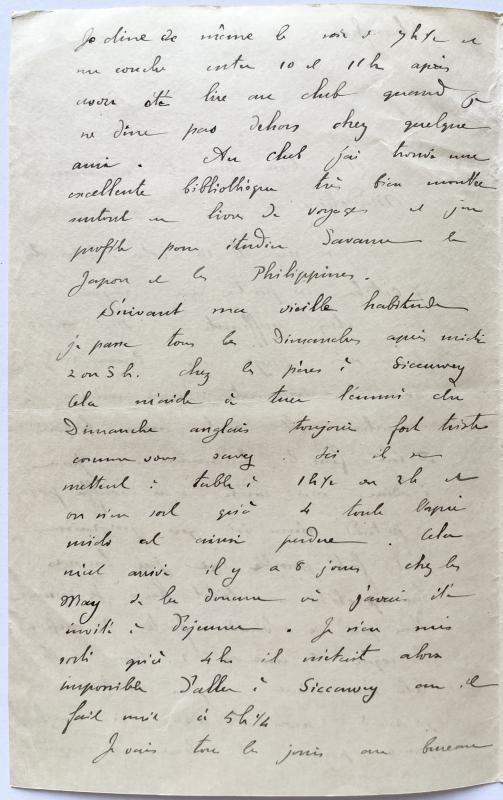 Je dîne de même le soir à 7h½ et
me couche entre 10 et 11h après
avoir été lire au club quand je
ne dîne pas dehors chez quelque
ami. Au club j'ai trouvé une
excellente bibliothèque très bien montée
surtout en livres de voyages et j'en
profite pour étudier le
Japon et les Philippines.
Suivant ma vieille habitude
je passe tous les Dimanches après midi
2 ou 3 h. chez les pères à Siccawey
Cela m'aide à tuer l'ennui du
Dimanche anglais toujours fort triste
comme vous savez. Ici il se
mettent à table à 1h½ ou 2h et
on n'en sort qu'à 4 toute l'après
midi est ainsi perdue. Cela
m'est arrivé il y a 8 jours chez les
May de la douane où j'avais été
invité à déjeuner. Je n'en suis
sorti qu'à 4h il m'était alors
impossible d'aller à Siccawey car il
fait nuit à 5h¼
Je vais tous les jours au bureau